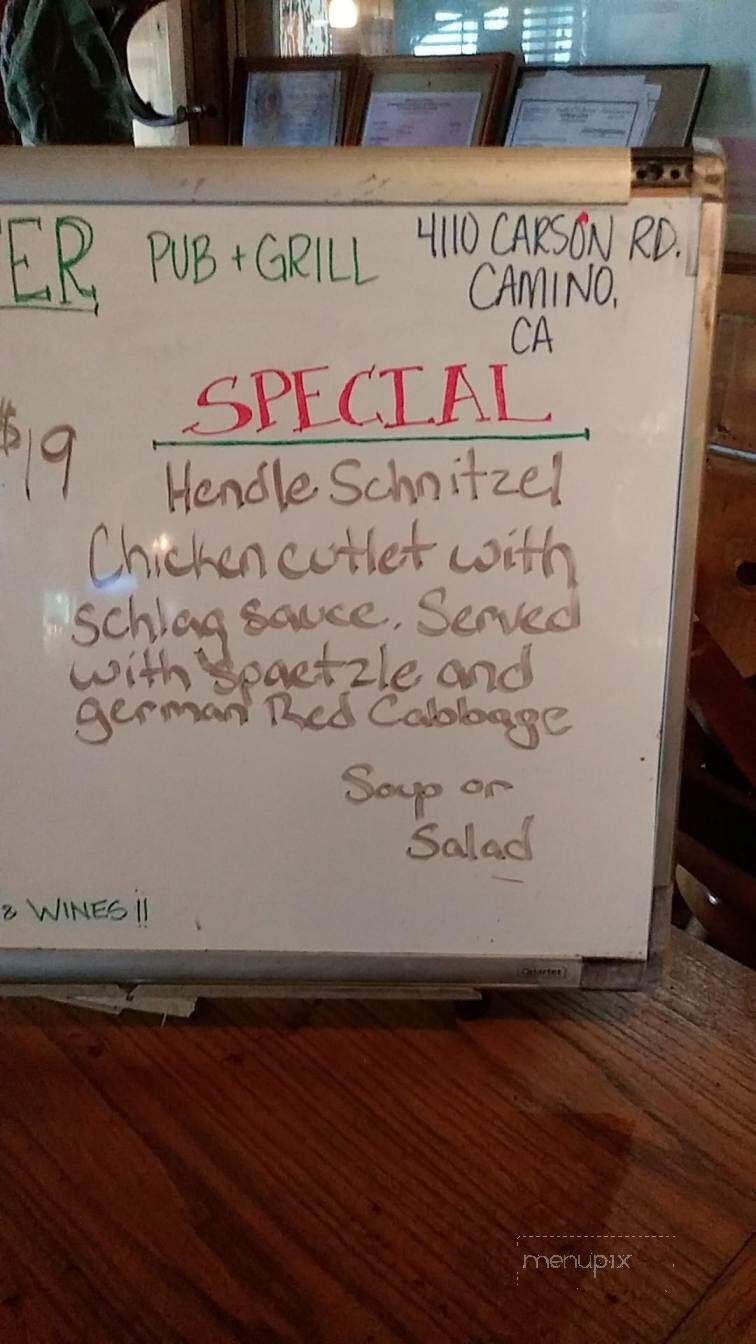 ER PUB + GRILL 4110 CARSON RD.
CAMINO,
CA
SPECIAL
$19
Hendle Schnitzel
Chicken cutlet with
schlag sauce. Served
with spaetzle and
german Red Cabbage
Soup or
Salad
& WINES!!
Quartet
menupix